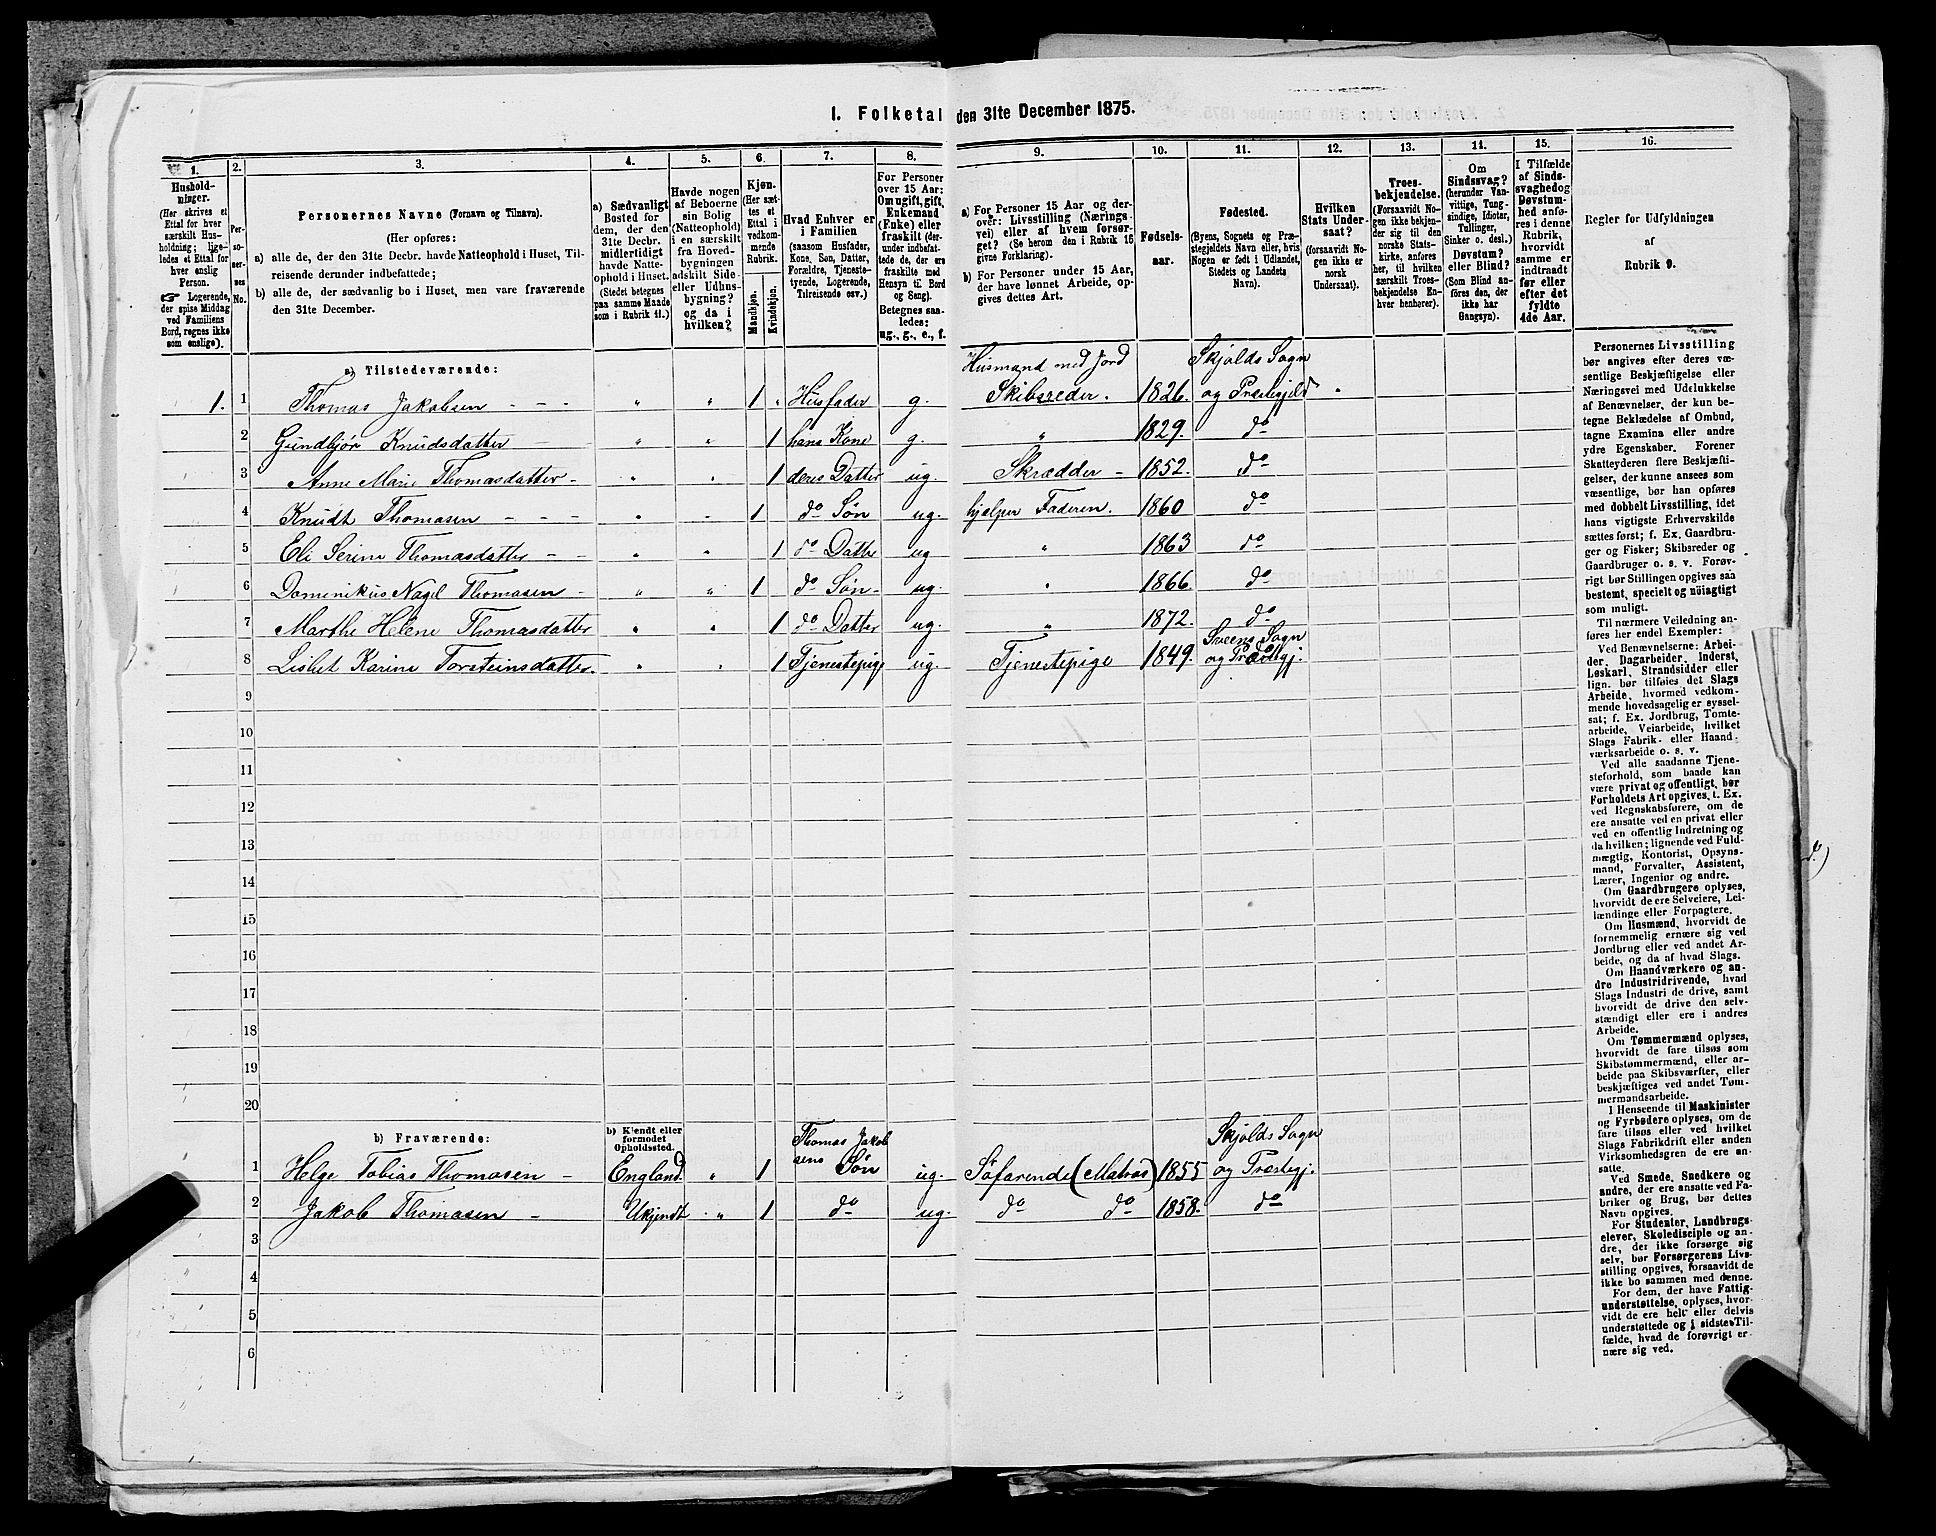 I. Folketal den 31te December 1875.
1. 2. 3. 4. 5. 6. 7. 8. 9. 10. 11. 12. 13. 14. 15. 16.
Hushold-
ninger.
(Her skrives et
Ettal for hver
særskilt Hus-
holdning; lige-
ledes et Ettal for
hver enslig
Person.
☞ Logerende,
der spise Middag
ved Familiens
Bord, regnes ikke
som enslige).
Per-
so-
ner-
nes
No.
Personernes Navne (Fornavn og Tilnavn).
(Her opføres:
a) alle de, der den 31te Decbr. havde Natteophold i Huset, Til-
reisende derunder indbefattede;
b) alle de, der sædvanlig bo i Huset, men vare fraværende
den 31te December.
a) Sædvanligt
Bosted for
dem, der den
31te Decbr.
midlertidigt
havde Natte-
ophold i Huset.
(Stedet betegnes
paa samme Maade
som i Rubrik 11.)
Havde nogen
af Beboerne
sin Bolig
(Natteophold)
i en særskilt
fra Hoved-
bygningen
adskilt Side-
eller Udhus-
bygning?
og da i
hvilken?
Kjøn.
(Her sæt-
tes et
Ettal i
vedkom-
mende
Rubrik.
Mandkjøn.
Kvindekjøn.
Hvad Enhver er
i Familien
(saasom Husfader,
Kone, Søn, Datter,
Forældre, Tjeneste-
tyende, Logerende,
Tilreisende osv.)
For Personer
over 15 Aar:
Om ugift, gift,
Enkemand
(Enke) eller
fraskilt (der-
under indbefat-
tede de, der ere
fraskilte med
Hensyn til Bord
og Seng).
Betegnes saa-
ledes:
ug., g., e., f.
a) For Personer 15 Aar og der-
over: Livsstilling (Nærings-
vei) eller af hvem forsør-
get? (Se herom den i Rubrik 16
givne Forklaring).
b) For Personer under 15 Aar,
der have lønnet Arbeide, op-
gives dettes Art.
Fødsels-
aar.
Fødested.
(Byens, Sognets og Præ-
stegjeldets Navn eller, hvis
Nogen er født i Udlandet,
Stedets og Landets
Navn).
Hvilken
Stats Under-
saat?
(forsaavidt No-
gen ikke er
norsk
Undersaat).
Troes-
bekjendelse.
(Forsaavidt No-
gen ikke bekjen-
der sig til den
norske Stats-
kirke, anføres
her, til hvilken
særskilt Troes-
bekjendelse En-
hver henhører).
Om
Sindssvag?
(herunder Van-
vittige, Tung-
sindige, Idioter,
Tullinger,
Sinker o. desl.)
Døvstum?
eller Blind?
(Som Blind an-
føres den, der
ikke har
Gangsyn).
I Tilfælde
af Sinds-
svaghed og
Døvstum-
hed anfø-
res i denne
Rubrik,
hvorvidt
samme er
indtraadt
før eller
efter det
fyldte
4de Aar.
Regler for Udfyldningen
af
Rubrik 9.
a) Tilstedeværende:
Husmand med Jord Skjolds Sogn
1. 1 Thomas Jakobsen - - - " " 1 " Husfader g. Skibsreder. 1826. og Præstegjeld "
2 Gundbjør Knudsdatter - " " 1 hans Kone g. " 1829. do
3 Anne Marie Thomasdatter - " " 1 deres Datter ug. Skrædder - 1852. do
4 Knudt Thomasen - - - " " 1 do Søn ug. hjelper Faderen. 1860 do
5 Eli Serine Thomasdatter - - " " 1 do Datter ug " 1863 do
6 Dominikus Nagel Thomasen - " " 1 do Søn - ug. " 1866. do
7 Marthe Helene Thomasdatter " " 1 do Datter ug. " 1872. do
Sveens Sogn
8 Lisbet Karine Torsteinsdatter. " " 1 Tjenestepige ug. Tjenestepige 1849. og Præstegj.
9
10
11
12
13
14
15
16
17
18
19
20
b) Fraværende:
b) Kjendt eller
formodet
Opholdssted.
Thomas Jakob Skjolds Sogn
1 Helge Tobias Thomasen - England " 1 sens Søn ug. Søfarende (Matros) 1855 og Præstegj.
2 Jakob Thomasen - Ukjendt " 1 do ug. do do 1858. do
3
4
5
6
Personernes Livsstilling
bør angives efter deres væ-
sentlige Beskjæftigelse eller
Næringsvei med Udelukkelse
af Benævnelser, der kun be-
tegne Beklædelse af Ombud,
tagne Examina eller andre
ydre Egenskaber. Forener
Skatteyderen flere Beskjæfti-
gelser, der kunne ansees som
væsentlige, bør han opføres
med dobbelt Livsstilling, idet
hans vigtigste Erhvervskilde
sættes først; f. Ex. Gaardbru-
ger og Fisker; Skibsreder og
Gaardbruger o. s. v. Forøv-
rigt bør Stillingen opgives saa
bestemt, specielt og nöiagtigt
som muligt.
Til nærmere Veiledning an-
føres her endel Exempler:
Ved Benævnelserne: Arbei-
der, Dagarbeider, Inderst,
Løskarl, Strandsidder eller
lign. bør tilføies det Slags
Arbeide, hvormed vedkom-
mende hovedsagelig er syssel-
sat; f. Ex. Jordbrug, Tomte-
arbeide, Veiarbeide, hvilket
Slags Fabrik- eller Haand-
værksarbeide o. s. v.
Ved alle saadanne Tjene-
steforhold, som baade kan
være privat og offentligt, bør
Forholdets Art opgives, t. Ex.
ved Regnskabsførere, om de
ere ansatte ved en privat eller
ved en offentlig Indretning og
da hvilken; lignende ved Fuld-
mægtig, Kontorist, Opsyns-
mand, Forvalter, Assistent,
Lærer, Ingeniør og andre.
Om Gaardbrugere oplyses,
hvorvidt de ere Selveiere, Lei-
lændinge eller Forpagtere.
Om Husmænd, hvorvidt de
fornemmelig ernære sig ved
Jordbrug eller ved andet Ar-
beide, og da af hvad Slags.
Om Haandværkere og an-
dre Industridrivende, hvad
Slags Industri de drive, samt
hvorvidt de drive den selv-
stændigt eller ere i andres
Arbeide.
Om Tømmermænd oplyses,
hvorvidt de fare tilsøs som
Skibstømmermænd, eller ar-
beide paa Skibsværfter, eller
beskjæftiges ved andet Tøm-
mermandsarbeide.
I Henseende til Maskinister
og Fyrbødere oplyses, om de
fare tilsøs eller ved hvilket
Slags Fabrikdrift eller anden
Virksomhedsgren de ere an-
satte.
Ved Smede, Snedkere og
andre, der ere ansatte ved Fa-
briker og Brug, bør dettes
Navn opgives.
For Studenter, Landbrugs-
elever, Skoledisciple og an-
dre, der ikke forsørge sig
selv, bør Forsørgerens Livs-
stilling opgives, forsaavidt de
ikke bo sammen med denne.
For dem, der have Fattig-
understøttelse, oplyses, hvor-
vidt de ere helt eller delvis
understøttede og i sidste Til-
fælde, hvad de forøvrigt er-
nære sig ved.